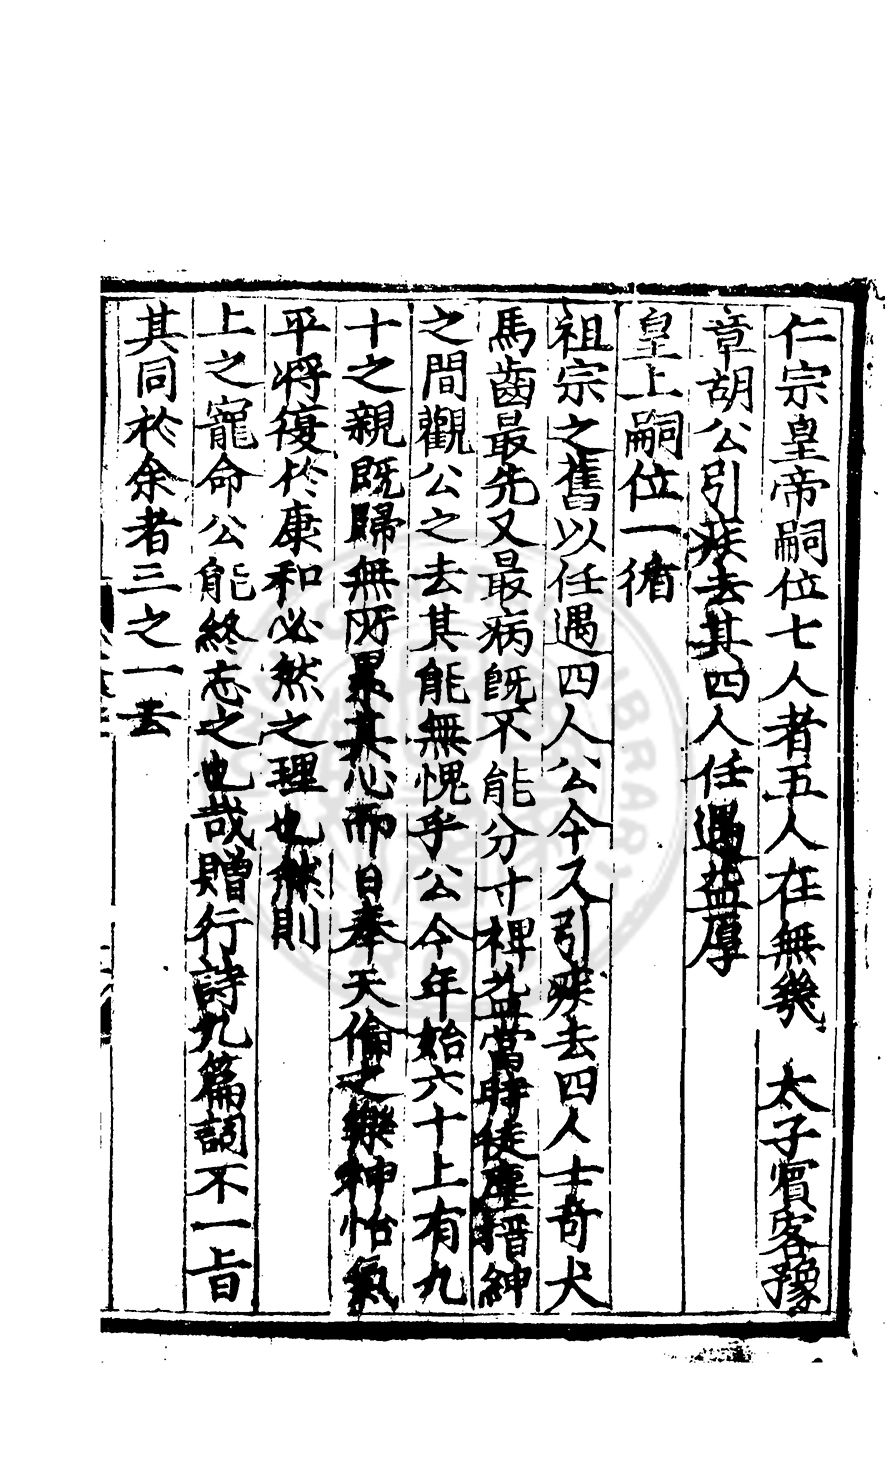 仁宗皇帝嗣位七人者五人在無幾　太子賔客豫
章胡公引疾去其四人任遇益厚
皇上嗣位一循
祖宗之舊以任遇四人公今又引疾去四人士奇犬
馬齒最先又最病旣不能分寸裨益當時徒塵搢紳
之間觀公之去其能無愧乎公今年始六十上有九
十之親既歸無所累其心而日奉天倫之樂神怡氣
平將復於康和必然之理也然則
上之寵命公能終志之也哉贈行詩九篇詞不一旨
其同於余者三之一去